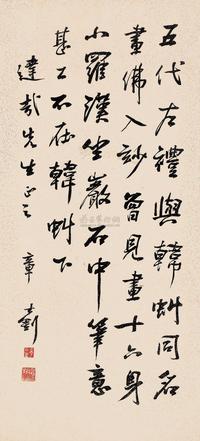 五代左禮與韓虬同名
畫佛入妙曾見畫十六身
小羅漢坐巖石中筆意
甚工不在韓虬下
達哉先生正之 章士釗